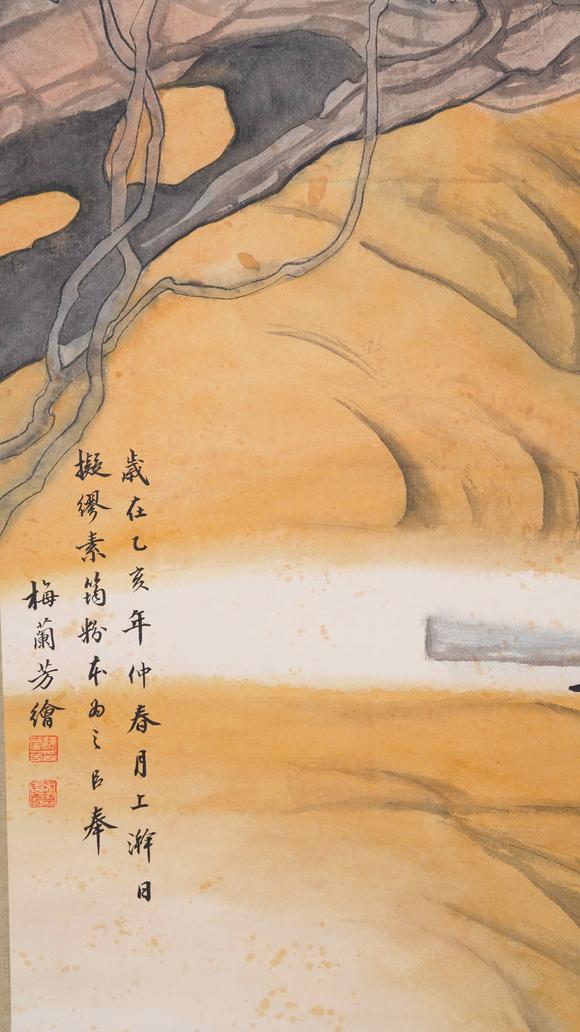 歲在乙亥年仲春月上澣日
擬繆素筠粉本為之㠯奉
梅蘭芳繪